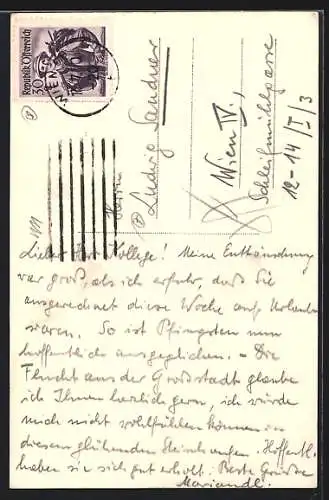 Republik Österreich
30
WIEN
Herrn
Ludwig Sandner
Wien IV.,
Schleifmühlgasse
12-14/I/3
Lieber Herr Kollege! Meine Enttäuschung
war groß, als ich erfuhr, daß Sie
ausgerechnet diese Woche auf Urlaub
waren. So ist Pfingsten nun
hoffentlich ausgeglichen. – Die
Flucht aus der Großstadt glaube
ich Ihnen herzlich gern, ich würde
mich nicht wohlfühlen können in
diesem glühenden Steinhaufen. Hoffentl.
haben sie sich gut erholt. Beste Grüsse
Mariandl.